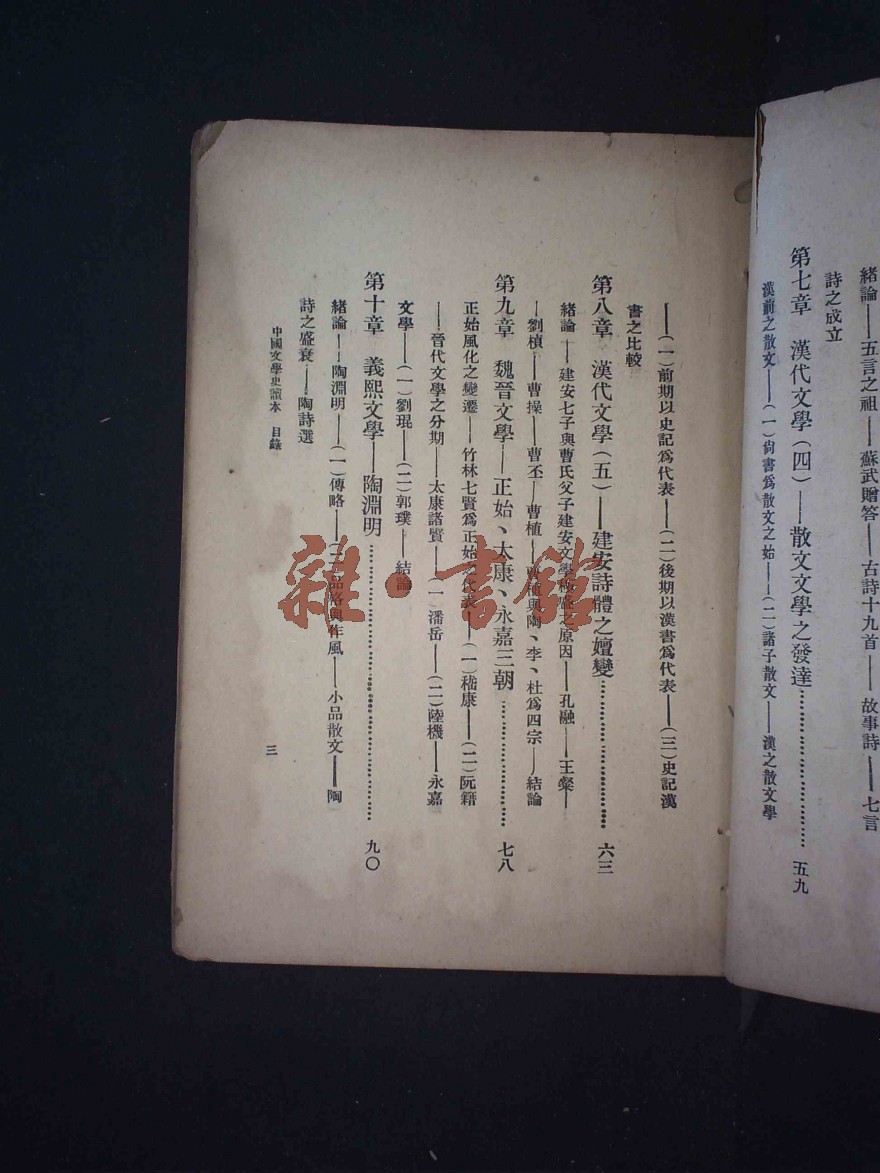 緒論——五言之祖——蘇武贈答——古詩十九首——故事詩——七言
詩之成立
第七章　漢代文學(四)——散文文學之發達……………………五九
漢前之散文——(一)尚書爲散文之始——(二)諸子散文——漢之散文學
——(一)前期以史記爲代表——(二)後期以漢書爲代表——(三)史記漢
書之比較
第八章　漢代文學(五)——建安詩體之嬗變……………………六三
緒論——建安七子與曹氏父子建安文學極盛之原因——孔融——王粲—
—劉楨——曹操——曹丕——曹植——曹植與陶、李、杜爲四宗——結論
第九章　魏晉文學——正始、太康、永嘉三朝……………………七八
正始風化之變遷——竹林七賢爲正始之代表——(一)嵇康——(二)阮籍
——晉代文學之分期——太康諸賢——(一)潘岳——(二)陸機——永嘉
文學——(一)劉琨——(二)郭璞——結論
第十章　義熙文學——陶淵明……………………九〇
緒論——陶淵明——(一)傳略——(二)品格與作風——小品散文——陶
詩之盛衰——陶詩選
中國文學史讀本　目錄
三
雜·書館